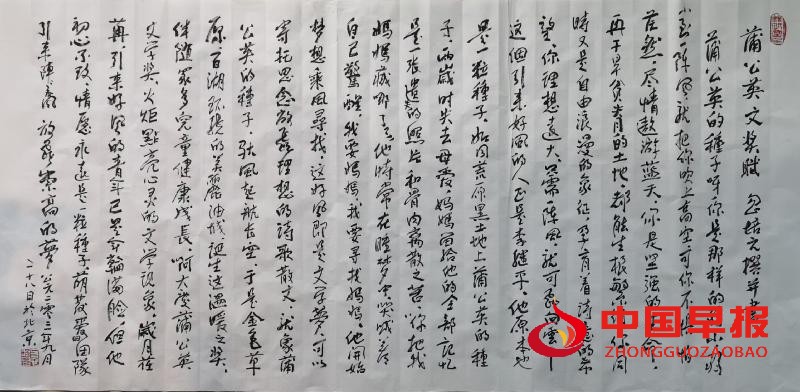 蒲公英文奖赋 忽培元撰并书
蒲公英的种子呀你是那样的
小一阵风就把你吹上高空可你不
茫然尽情遨游蓝天你是坚强的生命
再干旱贫瘠的土地都能生根
时又是自由浪漫的象征孕育着诗意的希
望你理想远大需一阵风就可飞向云
这个引来好风的人正是李继平他原本也
是一粒种子如同荒原黑土地上蒲公英的种
子两岁时失去母爱妈妈留给他的全部记忆
是一张遗照片和骨肉离散之苦你把我
妈妈藏哪了他时常在睡梦中哭喊着
自己惊醒我要妈妈我要寻找妈妈他开始
梦想乘风寻找这好风即是文学梦可以
寄托思念放飞理想的诗歌散文就象蒲
公英的种子驭风起航去于是金色草
原百湖环绕的美丽油城诞生这温暖之奖
伴随众多儿童健康成长啊大爱蒲公英
文学奖火炬点亮心灵的文学现象岁月荏
苒引来好风的青年已是令轮沧脸但他
初心不改情愿永远是一粒种子萌发团队
引来阵风放飞崇高的梦 二零二三年九月
二十八日于北京
中国早报
ZHONGGUOZAOBAO